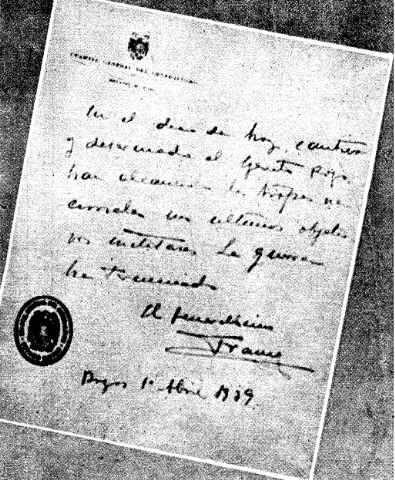 CUARTEL GENERAL DEL GENERALISIMO
En el dia de hoy, cautivo
y desarmado el Ejercito rojo
han alcanzado las tropas na
cionales sus ultimos objeti
vos militares. La guerra
ha terminado
El Generalisimo
Franco
Burgos 1º Abril 1939